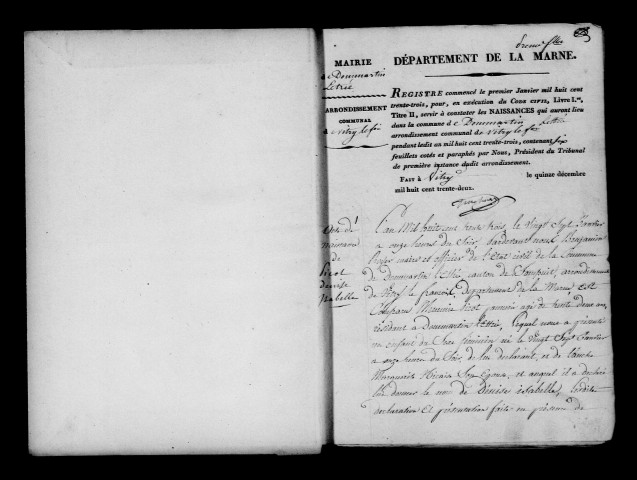 MAIRIE
d Dommartin
Letrée
ARRONDISSEMENT
COMMUNAL
d vitry le fois
DÉPARTEMENT DE LA MARNE.
REGISTRE commencé le premier Janvier mil huit cent
trente-trois, pour, en exécution du CODE CIVIL, Livre I.er,
Titre II, servir à constater les NAISSANCES qui auront lieu
dans la commune d Dommartin Letrée
arrondissement communal de vitry le fois
pendant ledit an mil huit cent trente-trois, contenant six
feuillets cotés et paraphés par Nous, Président du Tribunal
de première instance dudit arrondissement.
FAIT à Vitry le quinze décembre
mil huit cent trente-deux.
Acte de
naissance
de
Picot
denise
isabelle
L'an Mil huit cent trente trois, le Vingt Sept Janvier
a onze heures du Soir, pardevant nous Benjamin
maire et officier de l'Etat civil de la Commune
de Dommartin Letrée, canton de Sompuis, arrondissement
de Vitry le français, Departement de la Marne est
Comparu Picot agé de trente deux ans,
résidant a Dommartin Letrée, lequel nous a présenté
un enfant du Sexe feminin né le Vingt Sept Janvier
a onze heures du Soir, de lui déclarant, et de
Marguerite Son Epouse, et auquel il a déclaré
donner le nom de Denise isabelle, lesdites
declaration et présentation faite en présence de